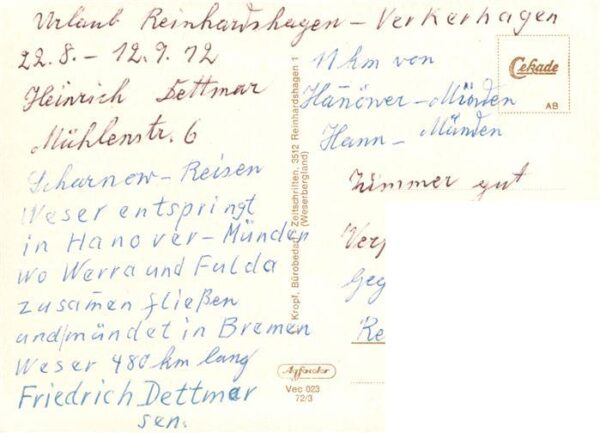 Urlaub Reinhardshagen – Verkerhagen
22.8. – 12.9.72
Heinrich Dettmar
Mühlenstr. 6
Scharnow – Reisen
Weser entspringt
in Hanover – Münden
wo Werra und Fulda
zusam̄en fließen
und mündet in Bremen
Weser 480 km lang
Friedrich Dettmar
sen.
Kropf, Bürobedarf - Zeitschriften, 3512 Reinhardshagen 1
(Weserbergland)
Vec 023
72/3
11 km von
Hanöwer – Münden
Hann – Münden
Zimmer gut
Verp
Geg
Re
Cekade
AB